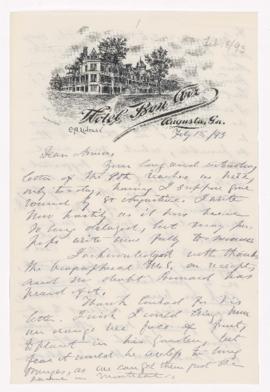 Feb 15/93
Hotel Bon Air
Augusta, Ga.
Feby 15/93
Dear
Your long and interesting
letter of the 8th reaches me here
only to day, having I suppose gone
round by St Augustine. I write
now hastily as it has been
so long delayed, but may per-
haps write more fully to
I acknowledged with thanks
the biographical M.S. on receipt,
and no doubt has
heard of it.
Thank for his
letter. I wish I could bring him
an orange tree full of fruit,
to plant in his garden, but
fear it would be useless to bring
oranges, as we can get them just the
same in Montreal.